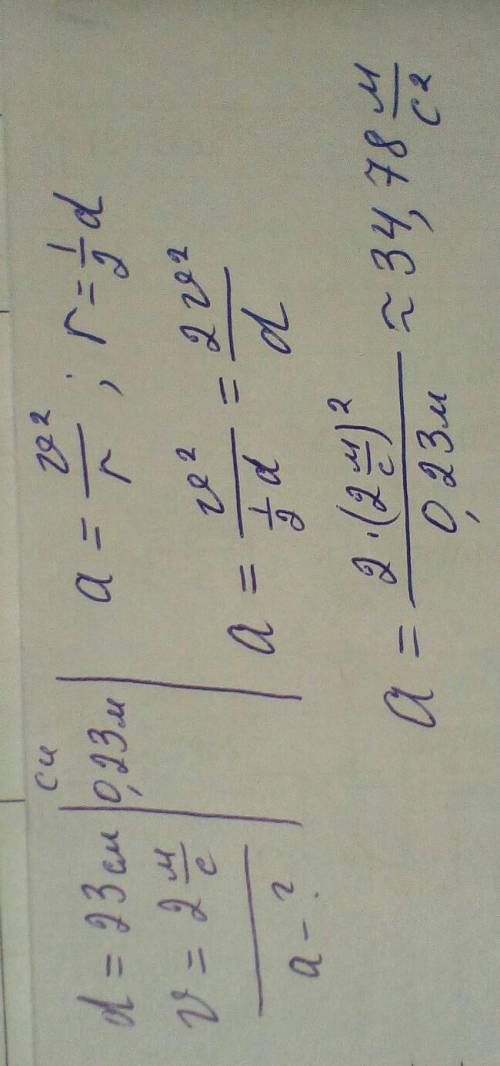 d = 23 см | СИ 0,23 м
v = 2 м/с
a - ?
a = v²/r ; r = 1/2 d
a = v²/(1/2 d) = 2v²/d
a = 2·(2 м/с)²/0,23 м ≈ 34,78 м/с²